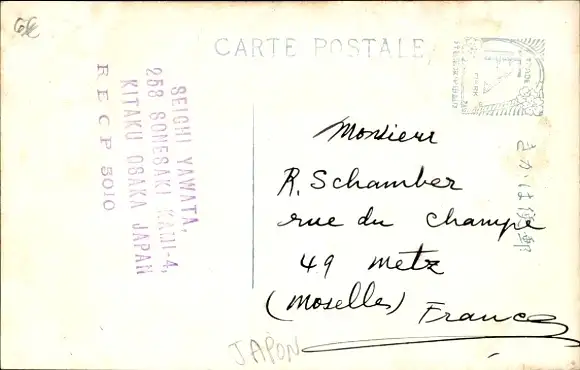 CARTE POSTALE
SEICHI YAWATA,
258 SONESAKI KAMI-4,
KITAKU OSAKA JAPAN
RECP 5010
TRADE
MARK
Monsieur
R. Schamber
rue du Champé
49 Metz
(Moselle) France
きかは便郵
JAPON